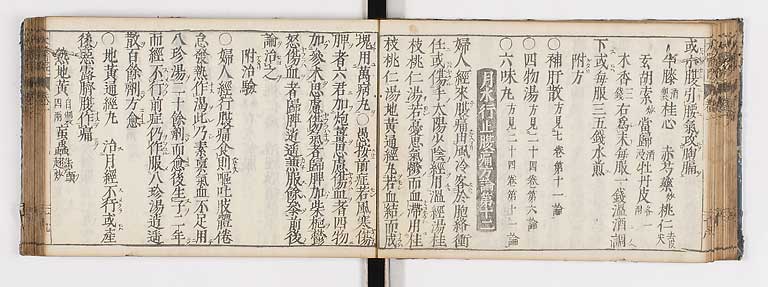 或小腹引腰氣攻胸膈
牛膝製 桂心 赤芍藥炒 桃仁去皮尖
玄胡索炒 當歸酒 牡丹皮各一
木香三 右爲末每服一錢溫酒調
下或每服三五錢水煎
附方
○補肝散方見七卷第十一論
○四物湯方見二十四卷第六論
○六味丸方見二十四卷第十一論
月水行止腹痛方論第十二
婦人經來腹痛由風冷客於胞絡衝
任或傷手太陽少陰經用溫經湯桂
枝桃仁湯若憂思氣鬱而血滯用桂
枝桃仁湯地黃通經丸若血結而成
塊用萬病丸○愚按前症若風寒傷
脾者六君加炮薑思慮傷血者四物
加參朮思慮傷氣者歸脾加柴梔鬱
怒傷血者歸脾逍遙兼服餘參前後
論治之
附治驗
○婦人經行腹痛食則嘔吐肢體倦
怠發熱作渴此乃素稟氣血不足用
八珍湯二十餘劑而愈後生子二年
而經不行前症仍作服八珍湯逍遙
散百餘劑方愈
○地黃通經丸 治月經不行或產
後惡露臍腹作痛
熟地黃自製四兩 虻蟲去頭翅炒